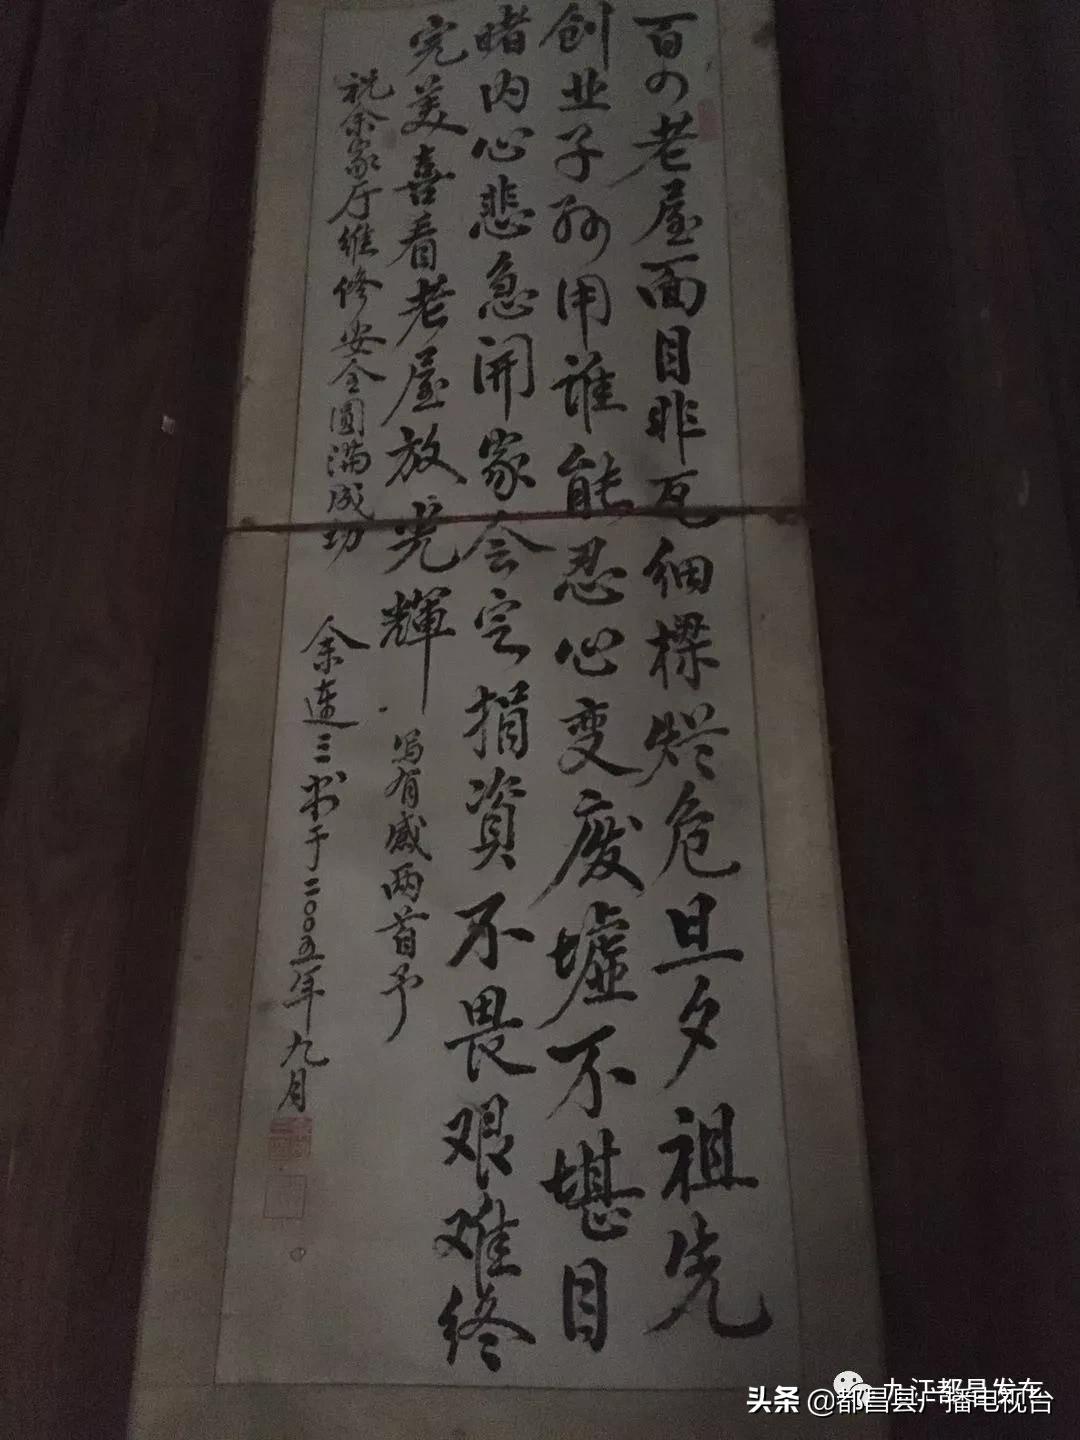 百岁老屋面目非瓦细樑烂危旦夕祖先
创业子孙用谁能忍心变废墟不堪目
睹内心悲急开家会定捐資不畏艰难终
完美喜看老屋放光輝 写有感两首予
祝余家厅维修安全圆满成功
余连三书于二〇〇五年九月
九江都昌发布
头条 @都昌县广播电视台